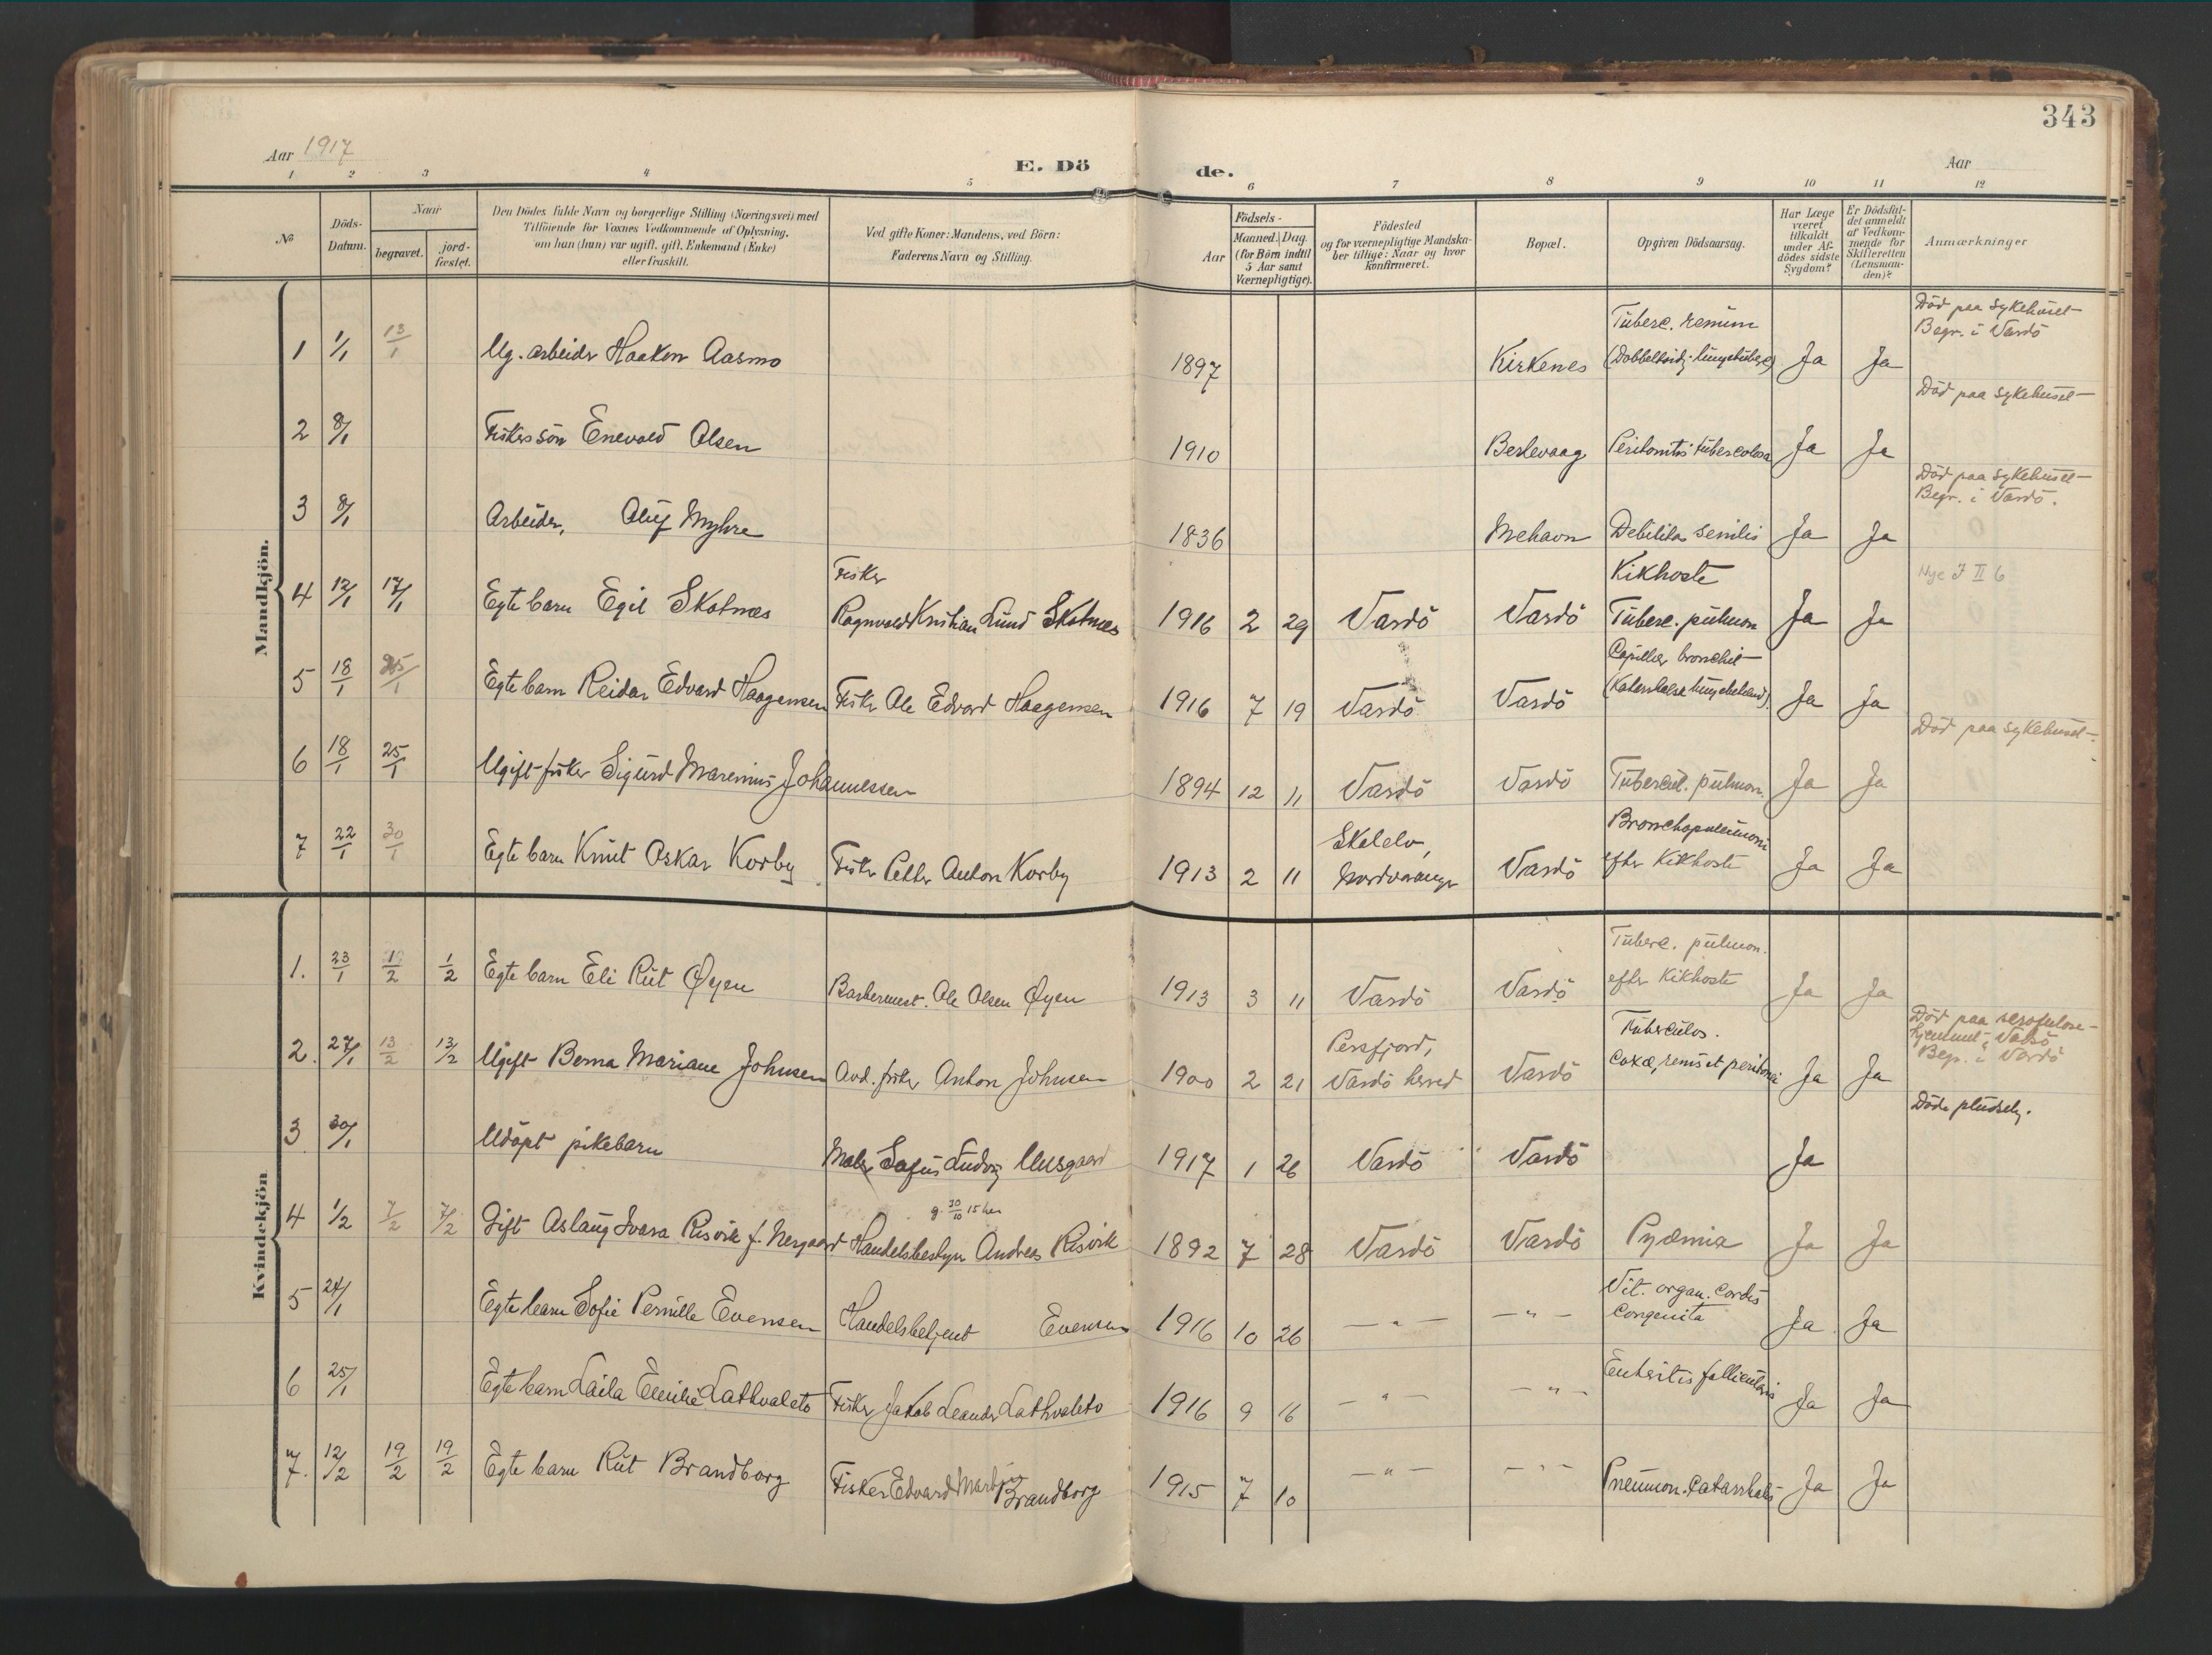 343
Aar 1917
E. Dö
de.
Aar
1 2 3 4 5 6 7 8 9 10 11 12
No
Döds-
Datum.
Naar
begravet.
jord-
fæstet.
Den Dödes fulde Navn og borgerlige Stilling (Næringsvei) med
Tilföiende for Voxnes Vedkommende af Oplysning,
om han (hun) var ugift, gift, Enkemand (Enke)
eller fraskilt.
Ved gifte Koner: Mandens, ved Börn:
Faderens Navn og Stilling.
Födsels-
Aar
Maaned. Dag.
(for Börn indtil
5 Aar samt
Værnepligtige).
Födested
og for værnepligtige Mandska-
ber tillige: Naar og hvor
konfirmeret.
Bopæl.
Opgiven Dödsaarsag.
Har Læge
været
tilkaldt
under Af-
dödes sidste
Sygdom?
Er Dödsfal-
det anmeldt
af Vedkom-
mende for
Skifteretten
(Lensman-
den)?
Anmærkninger
Mandkjön.
Död paa sykehuset
Tuberc. renum
Begr. i Vardö
1 1/1 13/1 Ug. arbeider Haakon Aasmo 1897 Kirkenes (Dobbeltsidj. lungetuberc) Ja Ja
Död paa sykehuset
2 8/1 Fiskers sön Enevald Olsen 1910 Berlevaag Peritonitis tuberculosa Ja Ja
Död paa sykehuset
Begr. i Vardö.
3 8/1 Arbeider, Oluf Myhre 1836 Mehavn Debilitas senilis Ja Ja
Fisker Kikhoste Nye J II 6
4 12/1 17/1 Egte barn Egil Skotnes Ragnvald Kristian Lund Skotnes 1916 2 29 Vardö Vardö Tuberc. pulmon Ja Ja
Capillær bronchit
5 18/1 25/1 Egte barn Reidar Edvard Haagensen Fisker Ole Edvard Haagensen 1916 7 19 Vardö Vardö (Katarrhalsk lungebetænd). Ja Ja
Död paa sykehuset
6 18/1 25/1 Ugift fisker Sigurd Marenius Johannessen 1894 12 11 Vardö Vardö Tubercul. pulmon. Ja Ja
Skelelv, Bronchopneumoni
7 22/1 30/1 Egte barn Knut Oskar Korby Fisker Petter Anton Korby 1913 2 11 Nordvaranger Vardö efter Kikhoste Ja Ja
Kvindekjön
Tuberc. pulmon.
1. 23/1 1/2 1/2 Egte barn Eli Rut Øyen Barbermest. Ole Olsen Øyen 1913 3 11 Vardö Vardö efter Kikhoste Ja Ja
Död paa scrofulose-
hjemmet i Vardö
Begr. i Vardö
Persfjord, Tuberculos.
2. 27/1 13/2 13/2 Ugift Berna Mariane Johnsen Avd. fisker Anton Johnsen 1900 2 21 Vardö herred Vardö coxæ, renis et peritonei Ja Ja
Döde pludselig.
3 30/1 Udöpt pikebarn Maler Sofus Ludvig 1917 1 26 Vardö Vardö Ja
g. 30/10 15 her
4 1/2 7/2 7/2 Gift Aslaug Ivara Risvik f. Nergaard Handelsbestyr Andreas Risvik 1892 7 28 Vardö Vardö Pyæmia Ja Ja
Vit. organ. cordis
5 24/1 Egte barn Sofie Pernille Evensen Handelsbetjent Evensen 1916 10 26 — " — — " — congenita Ja Ja
6 25/1 Egte barn Laila Emilie Lathvaleto Fisker Jakob Leander Lathvaleto 1916 9 16 — " — — " — Enteritis follicularis Ja Ja
7. 12/2 19/2 19/2 Egte barn Rut Brandborg Fisker Edvard Brandborg 1915 7 10 — " — — " — Pneumon. catarrhalis Ja Ja